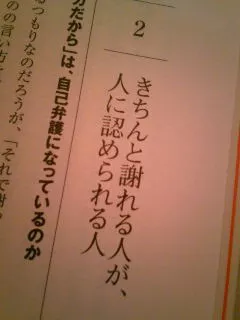 2
きちんと謝れる人が、
人に認められる人
だから」は、自己弁護になっているのか
るつもりなのだろうが、「それで謝っ
の言い方